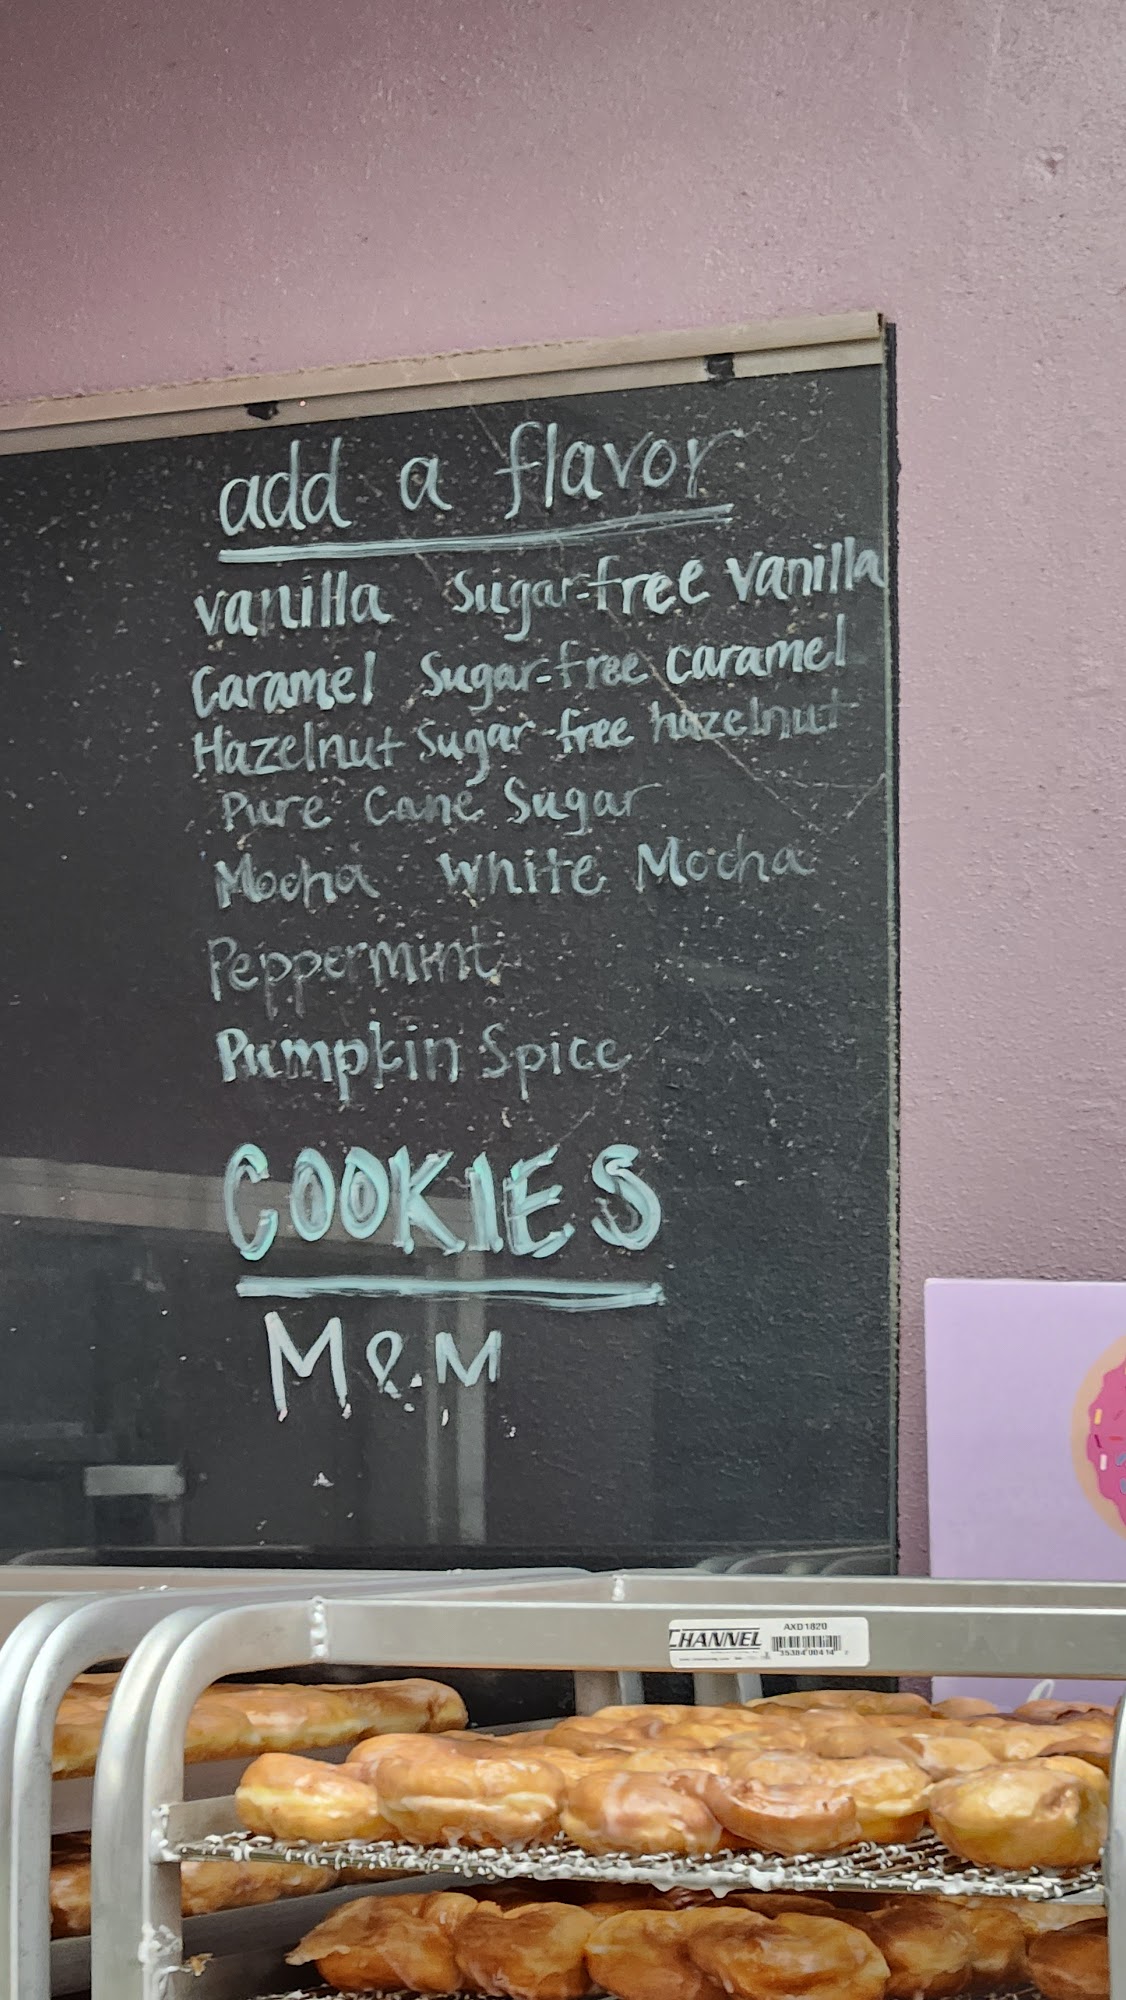 add a flavor
vanilla Sugar-free vanilla
Caramel Sugar-free caramel
Hazelnut Sugar-free hazelnut
Pure Cane Sugar
Mocha White Mocha
Peppermint
Pumpkin Spice
COOKIES
M&M
CHANNEL AXD1820